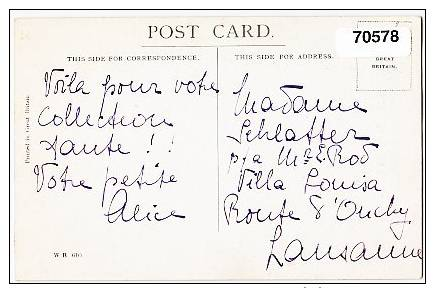 POST CARD.
70578
THIS SIDE FOR CORRESPONDENCE.
THIS SIDE FOR ADDRESS.
GREAT
BRITAIN.
Printed in Great Britain
Voilà pour votre
Collection
tante ! !
Votre petite
Alice
Madame
Schlatter
p/a Mr E. Rod
Villa Louisa
Route d'Ouchy
Lausanne
W.R. 610.